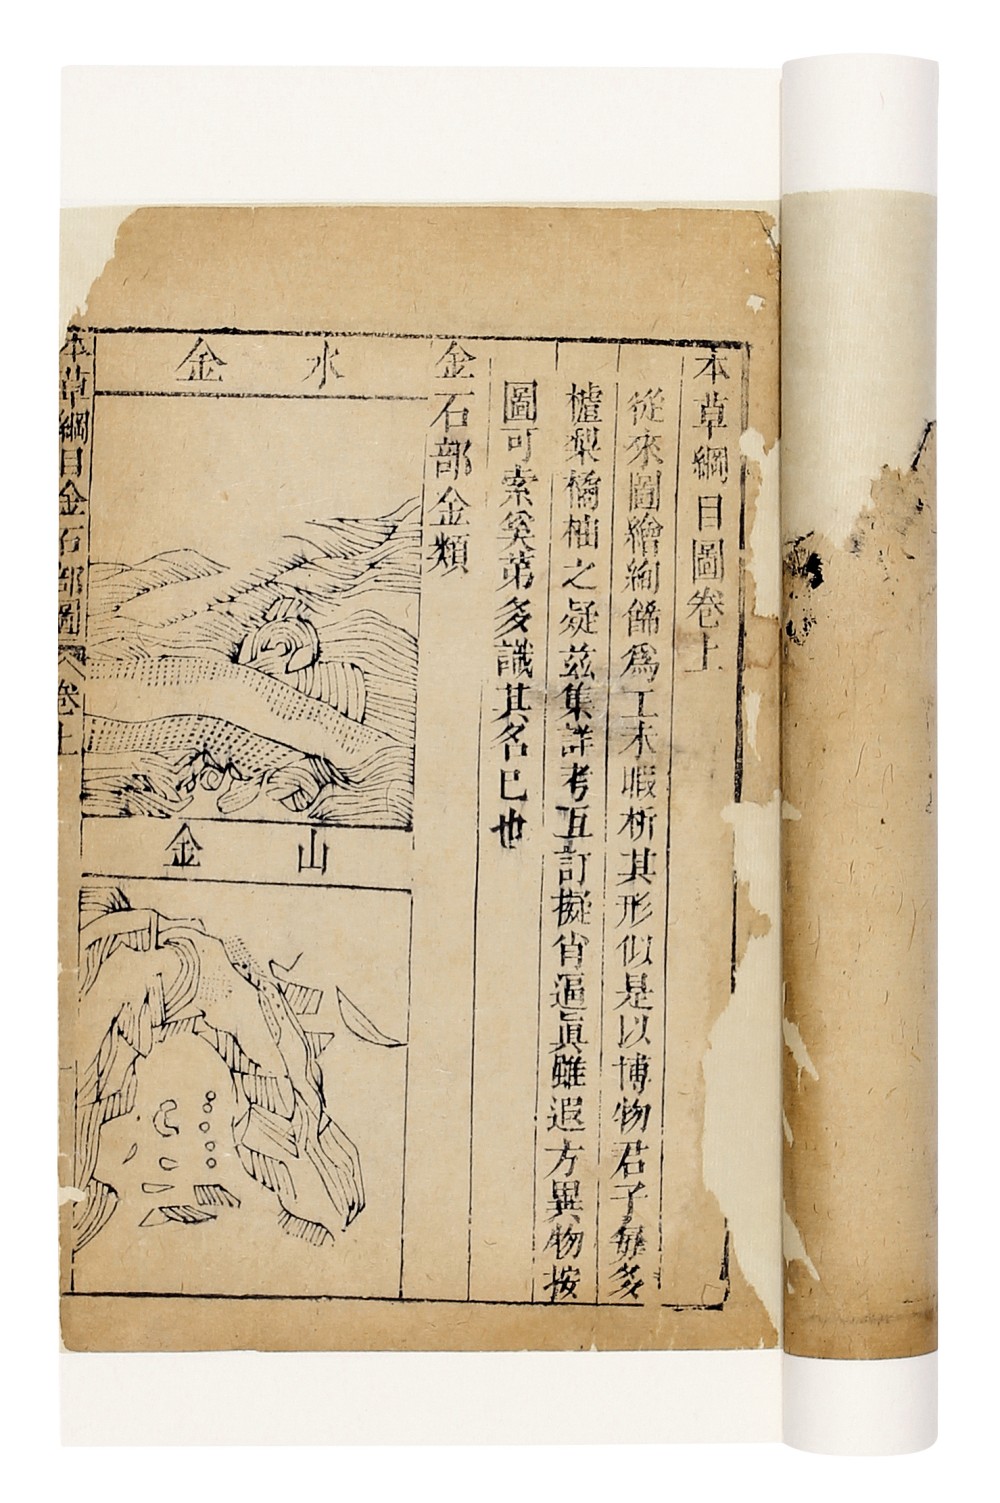 本草綱目圖卷上
從來圖繪絢飾爲工未暇析其形似是以博物君子每多
樝梨橘柚之疑茲集詳考互訂擬肖逼眞雖遐方異物按
圖可索奚第多識其名已也
金石部金類
水金
山金
本草綱目金石部圖 卷上